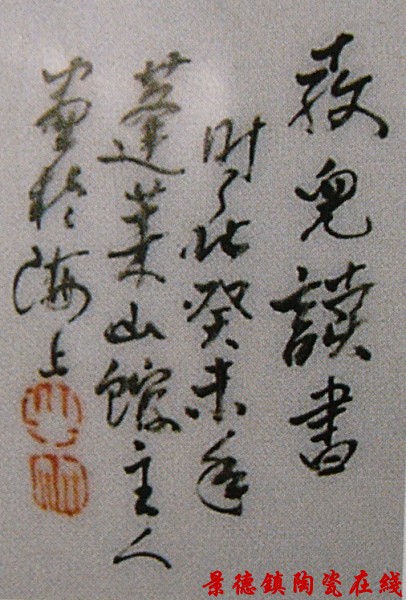 教兒讀書
時在癸未年
蓬萊山館主人
畫於海上
景德鎮陶瓷在綫